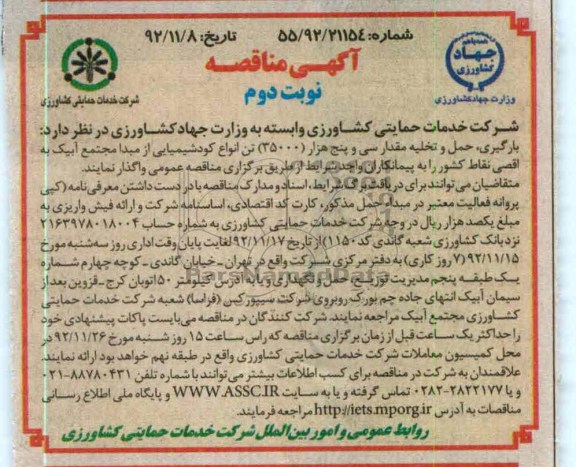 شماره: ۵۵/۹۲/۲۱۱۵۴ تاریخ: ۹۲/۱۱/۸
آگهی مناقصه
نوبت دوم
جهاد
کشاورزی
وزارت جهاد کشاورزی
شرکت خدمات حمایتی کشاورزی
شرکت خدمات حمایتی کشاورزی وابسته به وزارت جهاد کشاورزی در نظر دارد:
بارگیری، حمل و تخلیه مقدار سی و پنج هزار (۳۵۰۰۰) تن انواع کودشیمیایی از مبدا مجتمع آبیک به
اقصی نقاط کشور را به پیمانکاران واجد شرایط از طریق برگزاری مناقصه عمومی واگذار نمایند.
متقاضیان می‌توانند برای دریافت برگ شرایط، اسناد و مدارک مناقصه با در دست داشتن معرفی نامه (کپی
پروانه فعالیت معتبر در مبداء حمل مذکور، کارت کد اقتصادی، اساسنامه شرکت و ارائه فیش واریزی به
مبلغ یکصد هزار ریال در وجه شرکت خدمات حمایتی کشاورزی به شماره حساب ۲۱۶۳۹۷۸۰۱۸۰۰۴
نزد بانک کشاورزی شعبه گاندی کد ۱۱۵۰) از تاریخ ۹۲/۱۱/۱۷ لغایت پایان وقت اداری روز سه‌شنبه مورخ
۹۲/۱۱/۱۵ (۷ روز کاری) به دفتر مرکزی شرکت واقع در تهران ـ خیابان گاندی ـ کوچه چهارم شماره
یک طبقه پنجم مدیریت توزیع، حمل و نگهداری و یا به آدرس کیلومتر ۵۰ اتوبان کرج ـ قزوین بعد از
سیمان آبیک انتهای جاده چم بورک روبروی شرکت سیپورکس (فراسا) شعبه شرکت خدمات حمایتی
کشاورزی مجتمع آبیک مراجعه نمایند. شرکت کنندگان در مناقصه می‌بایست پاکات پیشنهادی خود
را حداکثر یک ساعت قبل از زمان برگزاری مناقصه که راس ساعت ۱۵ روز شنبه مورخ ۹۲/۱۱/۲۶ در
محل کمیسیون معاملات شرکت خدمات حمایتی کشاورزی واقع در طبقه نهم خواهد بود ارائه نمایند.
علاقمندان به شرکت در مناقصه برای کسب اطلاعات بیشتر می‌توانند با شماره تلفن ۸۸۷۸۰۴۳۱-۰۲۱
و یا ۲۸۲۲۱۷۷-۰۲۸۳ تماس گرفته و یا به سایت WWW.ASSC.IR و پایگاه ملی اطلاع رسانی
مناقصات به آدرس http://iets.mporg.ir مراجعه فرمایند.
روابط عمومی و امور بین الملل شرکت خدمات حمایتی کشاورزی